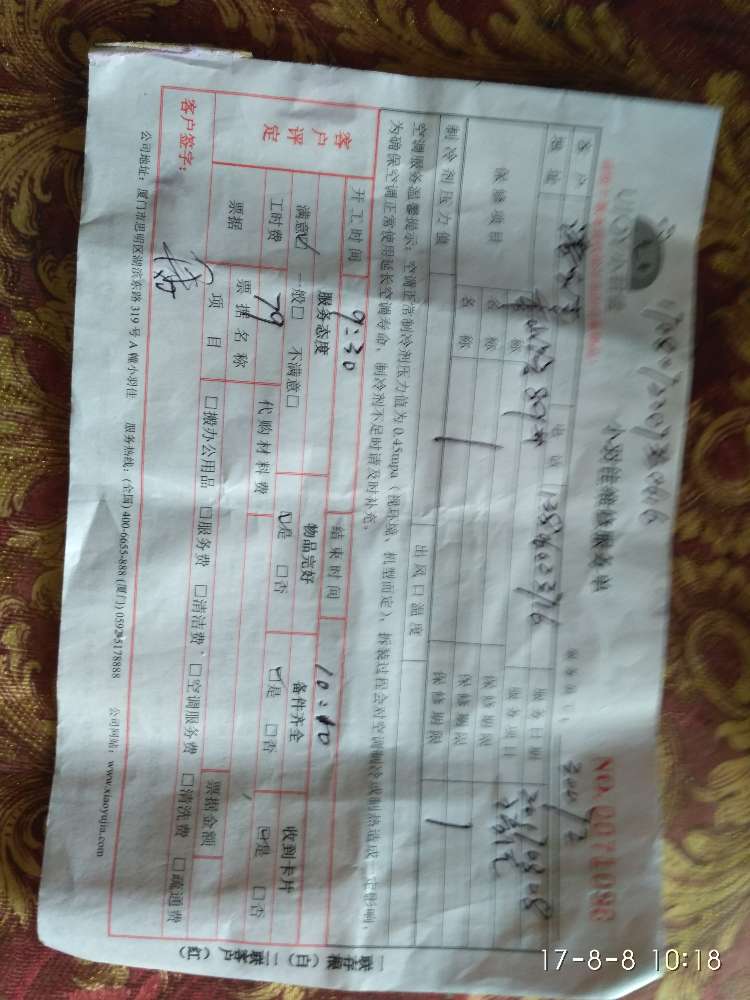 小羽佳维修服务单
NO. 0071086
客户 电话 138 服务日期
地址 服务项目
保修项目 名称 保修期限
名称 保修期限
名称 保修期限
制冷剂压力值 出风口温度
空调服务温馨提示：空调正常制冷剂压力值为0.45mpa（视环境、机型而定），拆装过程会对空调制冷或制热造成一定影响，
为确保空调正常使用延长空调寿命，制冷剂不足时请及时补充。
开工时间 9:30 结束时间 10:10
客户评定 服务态度 物品完好 备件齐全 收到卡片
满意☑ 一般□ 不满意□ ☑是 □否 ☑是 □否 ☑是 □否
工时费 79 代购材料费
票据 票据名称 票据金额
项目 □搬办公用品 □服务费 □清洁费 □空调服务费 □清洗费 □疏通费
客户签字：
公司地址：厦门市思明区湖滨东路319号A幢小羽佳 服务热线：(全国) 400-6655-888 (厦门) 0592-5178888 公司网站：www.xiaoyujia.com
一联存根（白）二联客户（红）
17-8-8 10:18